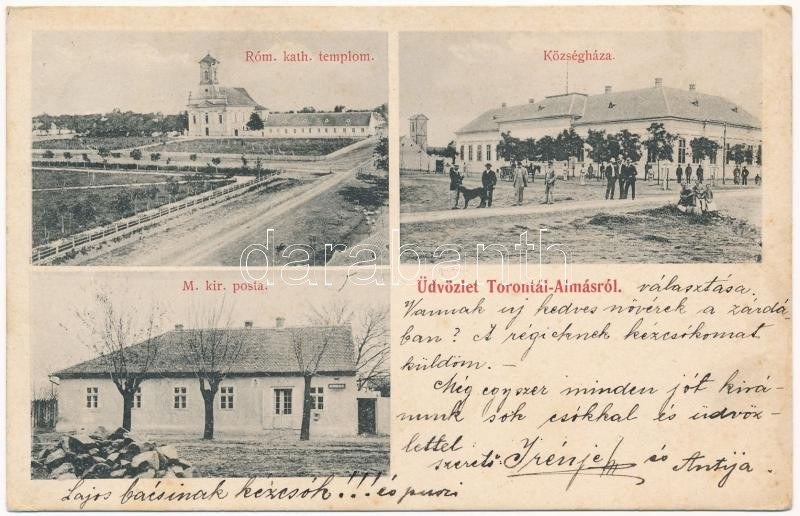 Róm. kath. templom.
Községháza.
M. kir. posta.
Üdvözlet Torontál-Almásról. választása.
Vannak új kedves nővérek a zárdá-
ban? A régieknek kézcsókomat
küldöm. —
Még egyszer minden jót kivá-
nunk sok csókkal és üdvöz-
lettel
szerető: Irénje és Antija.
Lajos bácsinak kézcsók!!! és puszi
darabanth